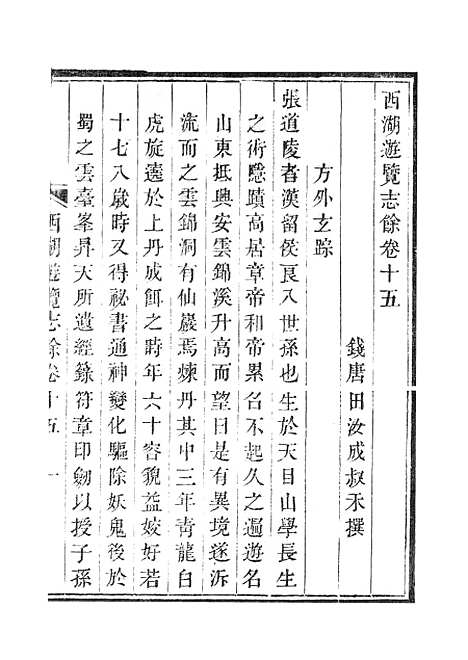 西湖遊覽志餘卷十五
錢唐田汝成叔禾撰
方外玄踪
張道陵者漢留侯良八世孫也生於天目山學長生
之術隱蹟高居章帝和帝累名不起久之遍遊名
山東抵興安雲錦溪升高而望曰是有異境遂泝
流而之雲錦洞有仙巖焉煉丹其中三年靑龍白
虎旋遶於上丹成餌之時年六十容貌益姣好若
十七八歲時又得祕書通神變化驅除妖鬼後於
蜀之雲臺峯昇天所遺經籙符章印劒以授子孫
西湖遊覽志餘卷十五 一